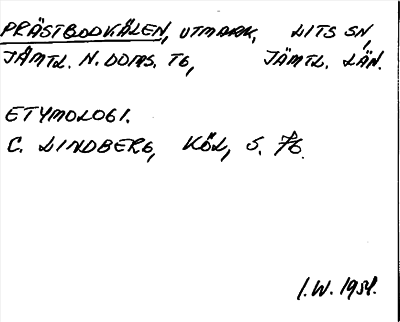 PRÄSTBODKÄLEN, UTMARK, LITS SN,
JÄMTL. N. DOMS. TG, JÄMTL. LÄN.
ETYMOLOGI.
C. LINDBERG, KÖL, S. 76.
I.W. 1954.